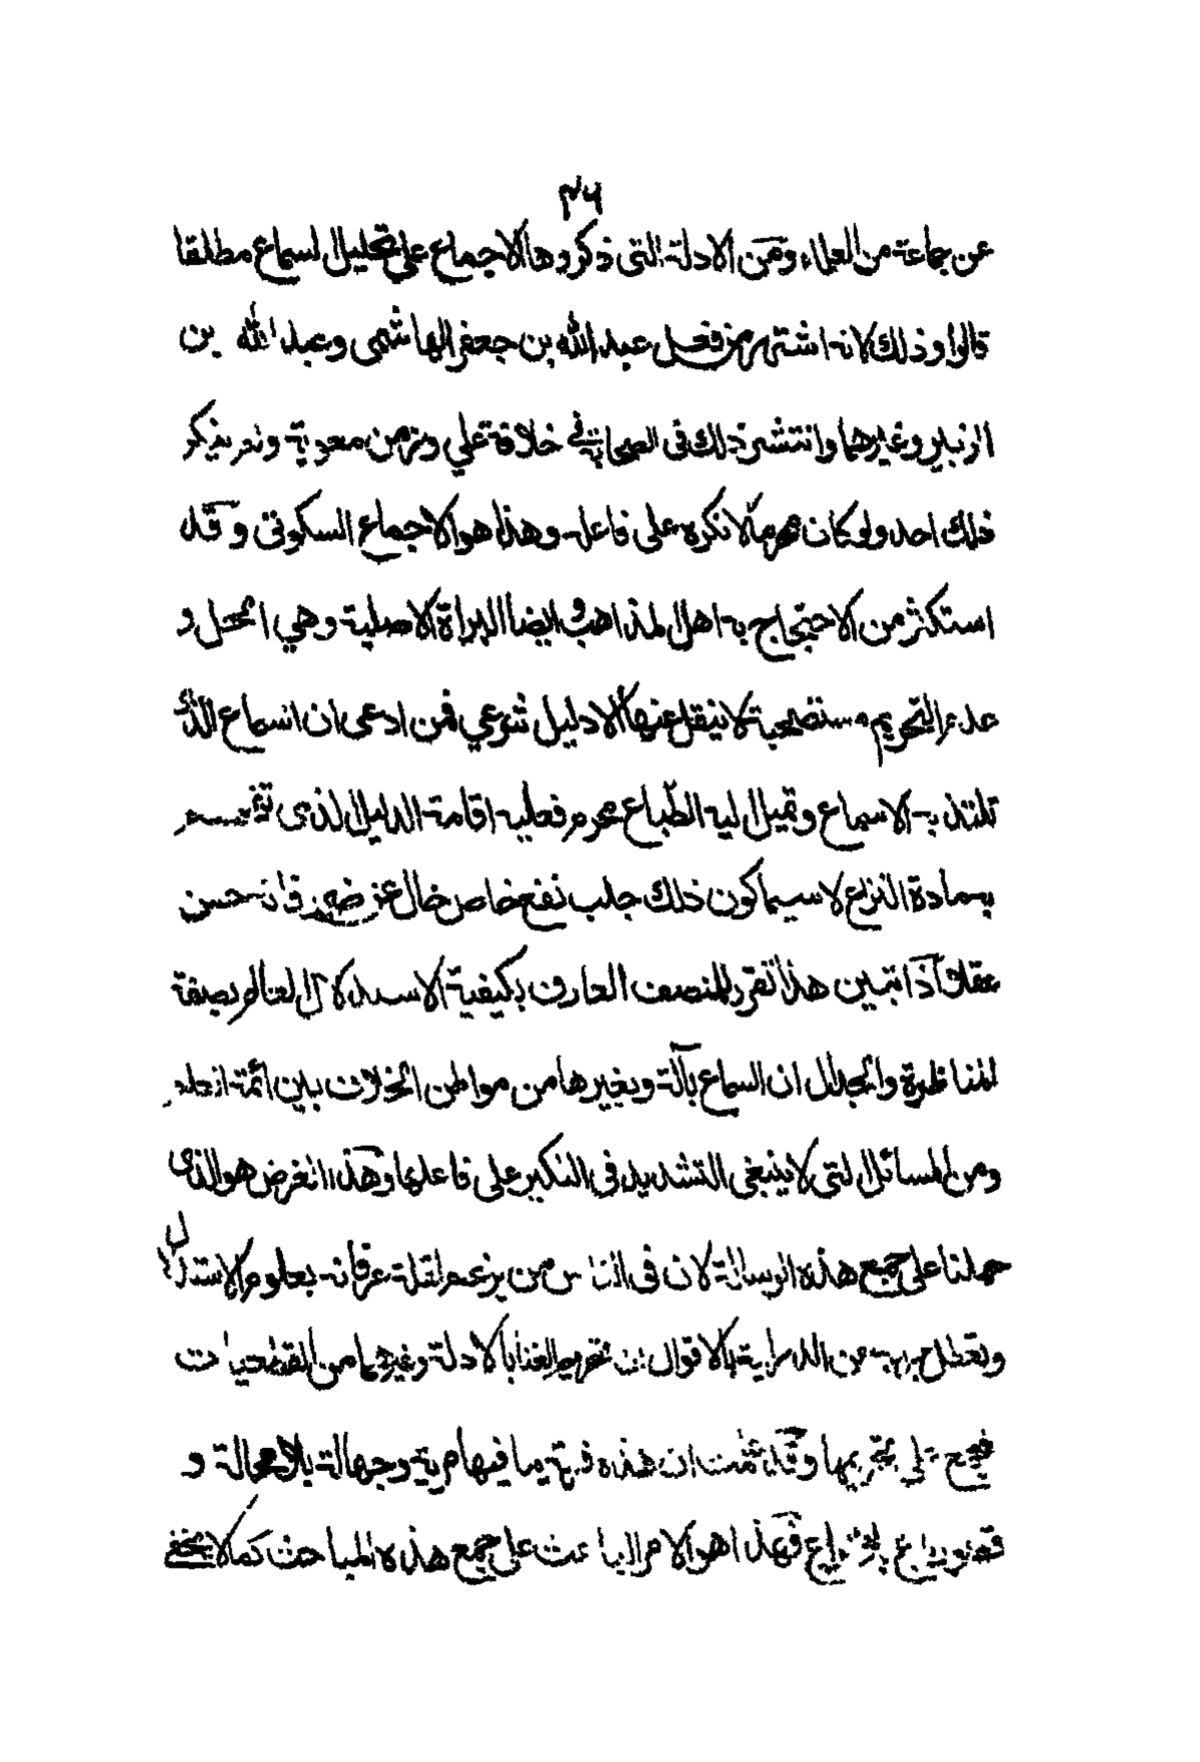 ٣٦
عن جماعة من العلماء ومن الادلة التى ذكروها الاجماع على تحليل السماع مطلقا
قالوا وذلك لانه اشتهر من فعل عبد الله بن جعفر الهاشمى وعبد الله بن
الزبير وغيرهما وانتشر ذلك فى الصحابة فى خلافة علي وزمن معوية ولم ينكر
ذلك احد ولو كان محرما لانكره على فاعله وهذا هو الاجماع السكوتى وقد
استكثر من الاحتجاج به اهل المذاهب وايضا البراة الاصلية وهي الحل و
عدم التحريم مستصحبة لا ينقل عنها الا دليل شرعي فمن ادعى ان السماع الذى
تلتذ به الاسماع وتميل اليه الطباع محرم فعليه اقامة الدليل الذى
به مادة النزاع لا سيما كون ذلك جلب نفع خاص خال عن ضرر فانه حسن
عقلا اذا تبين هذا تقرر للمنصف العارف بكيفية الاستدلال العالم بصفة
المناظرة والجدال ان السماع بآلة وبغيرها من مواطن الخلاف بين ائمة العلم
ومن المسائل التى لا ينبغى التشديد فى النكير على فاعلها وهذا الغرض هو الذى
حملنا على جمع هذه الرسالة لان فى الناس من يزعم لقلة عرفانه بعلوم الاستدلال
وتعطل من الدراية بالاقوال ان تحريم الغنا بالالة وغيرها من القطعيات
على تحريمها وقد ان هذه فرية ما فيها مرية وجهالة بلا محالة و
فهذا هو الامر الباعث على جمع هذه المباحث كما لا يخفى